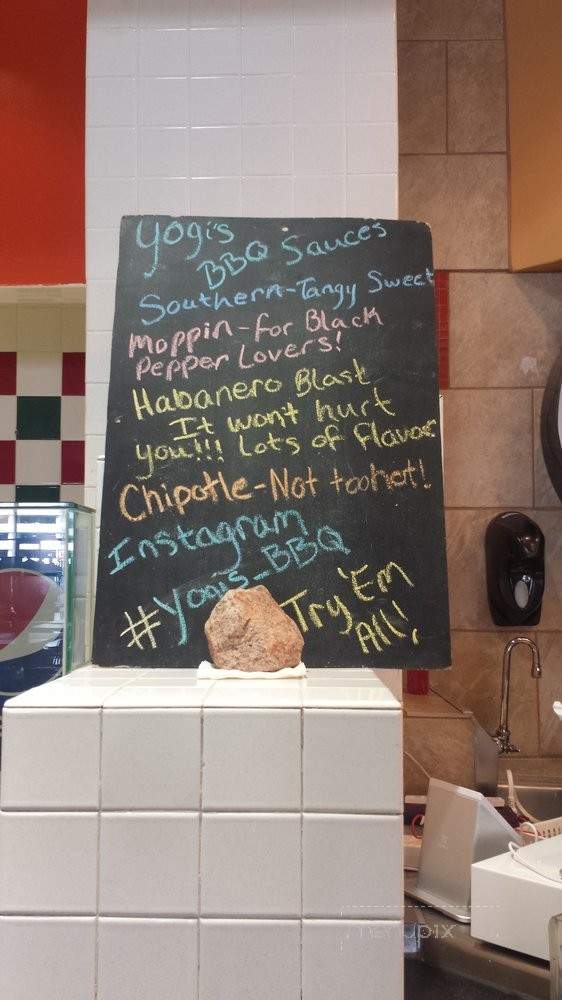 Yogi's
BBQ Sauces
Southern-Tangy Sweet
Moppin-for Black
Pepper Lovers!
Habanero Blast
It wont hurt
you!!! Lots of flavor
Chipotle-Not too hot!
Instagram
#Yogis_BBQ
Try 'Em
All!
menupix